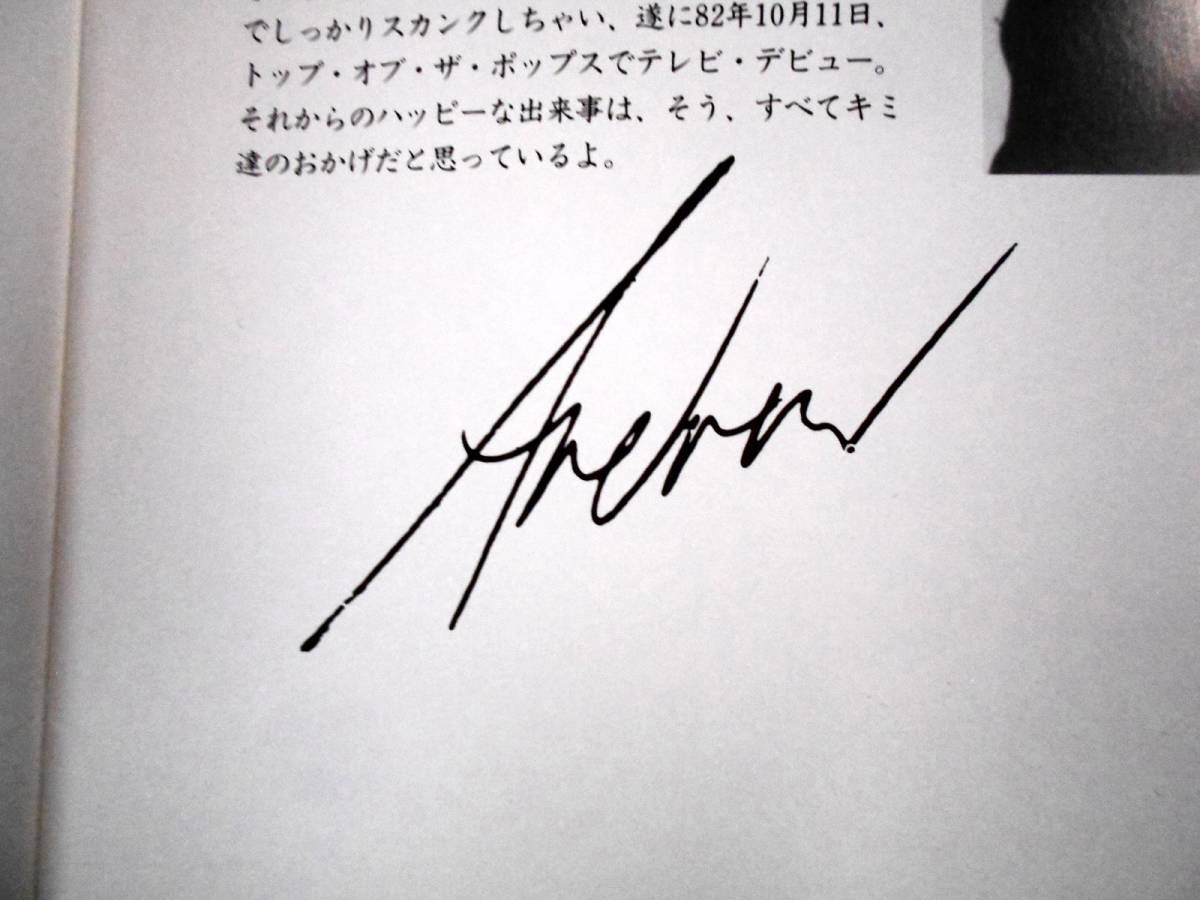 でしっかりスカンクしちゃい、遂に82年10月11日、
トップ・オブ・ザ・ポップスでテレビ・デビュー。
それからのハッピーな出来事は、そう、すべてキミ
達のおかげだと思っているよ。
Andrew